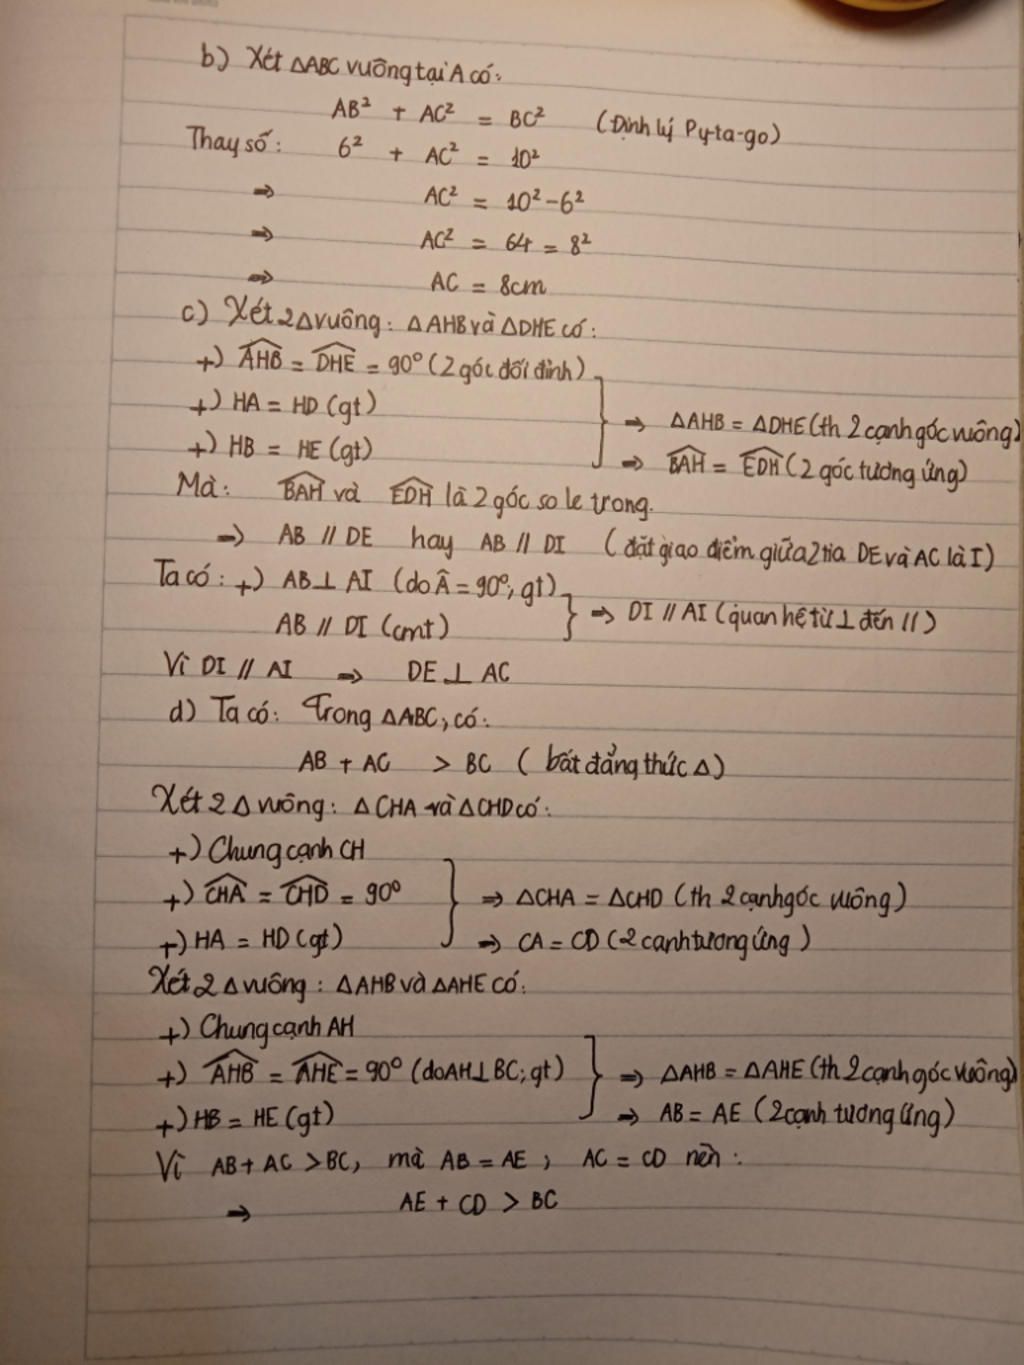 b) Xét ΔABC vuông tại A có:
AB² + AC² = BC² (Định lý Py-ta-go)
Thay số: 6² + AC² = 10²
⇒ AC² = 10² - 6²
⇒ AC² = 64 = 8²
⇒ AC = 8cm
c) Xét 2Δ vuông: ΔAHB và ΔDHE có:
+) \widehat{AHB} = \widehat{DHE} = 90° (2 góc đối đỉnh)
+) HA = HD (gt)
+) HB = HE (gt)
} ⇒ ΔAHB = ΔDHE (th 2 cạnh góc vuông)
⇒ \widehat{BAH} = \widehat{EDH} (2 góc tương ứng)
Mà: \widehat{BAH} và \widehat{EDH} là 2 góc so le trong.
⇒ AB // DE hay AB // DI (đặt giao điểm giữa 2 tia DE và AC là I)
Ta có: +) AB ⊥ AI (do Â = 90°, gt)
AB // DI (cmt)
} ⇒ DI // AI (quan hệ từ ⊥ đến //)
Vì DI // AI ⇒ DE ⊥ AC
d) Ta có: Trong ΔABC, có:
AB + AC > BC (bất đẳng thức Δ)
Xét 2Δ vuông: ΔCHA và ΔCHD có:
+) Chung cạnh CH
+) \widehat{CHA} = \widehat{CHD} = 90°
+) HA = HD (gt)
} ⇒ ΔCHA = ΔCHD (th 2 cạnh góc vuông)
⇒ CA = CD (2 cạnh tương ứng)
Xét 2Δ vuông: ΔAHB và ΔAHE có:
+) Chung cạnh AH
+) \widehat{AHB} = \widehat{AHE} = 90° (do AH ⊥ BC; gt)
+) HB = HE (gt)
} ⇒ ΔAHB = ΔAHE (th 2 cạnh góc vuông)
⇒ AB = AE (2 cạnh tương ứng)
Vì AB + AC > BC, mà AB = AE, AC = CD nên:
⇒ AE + CD > BC